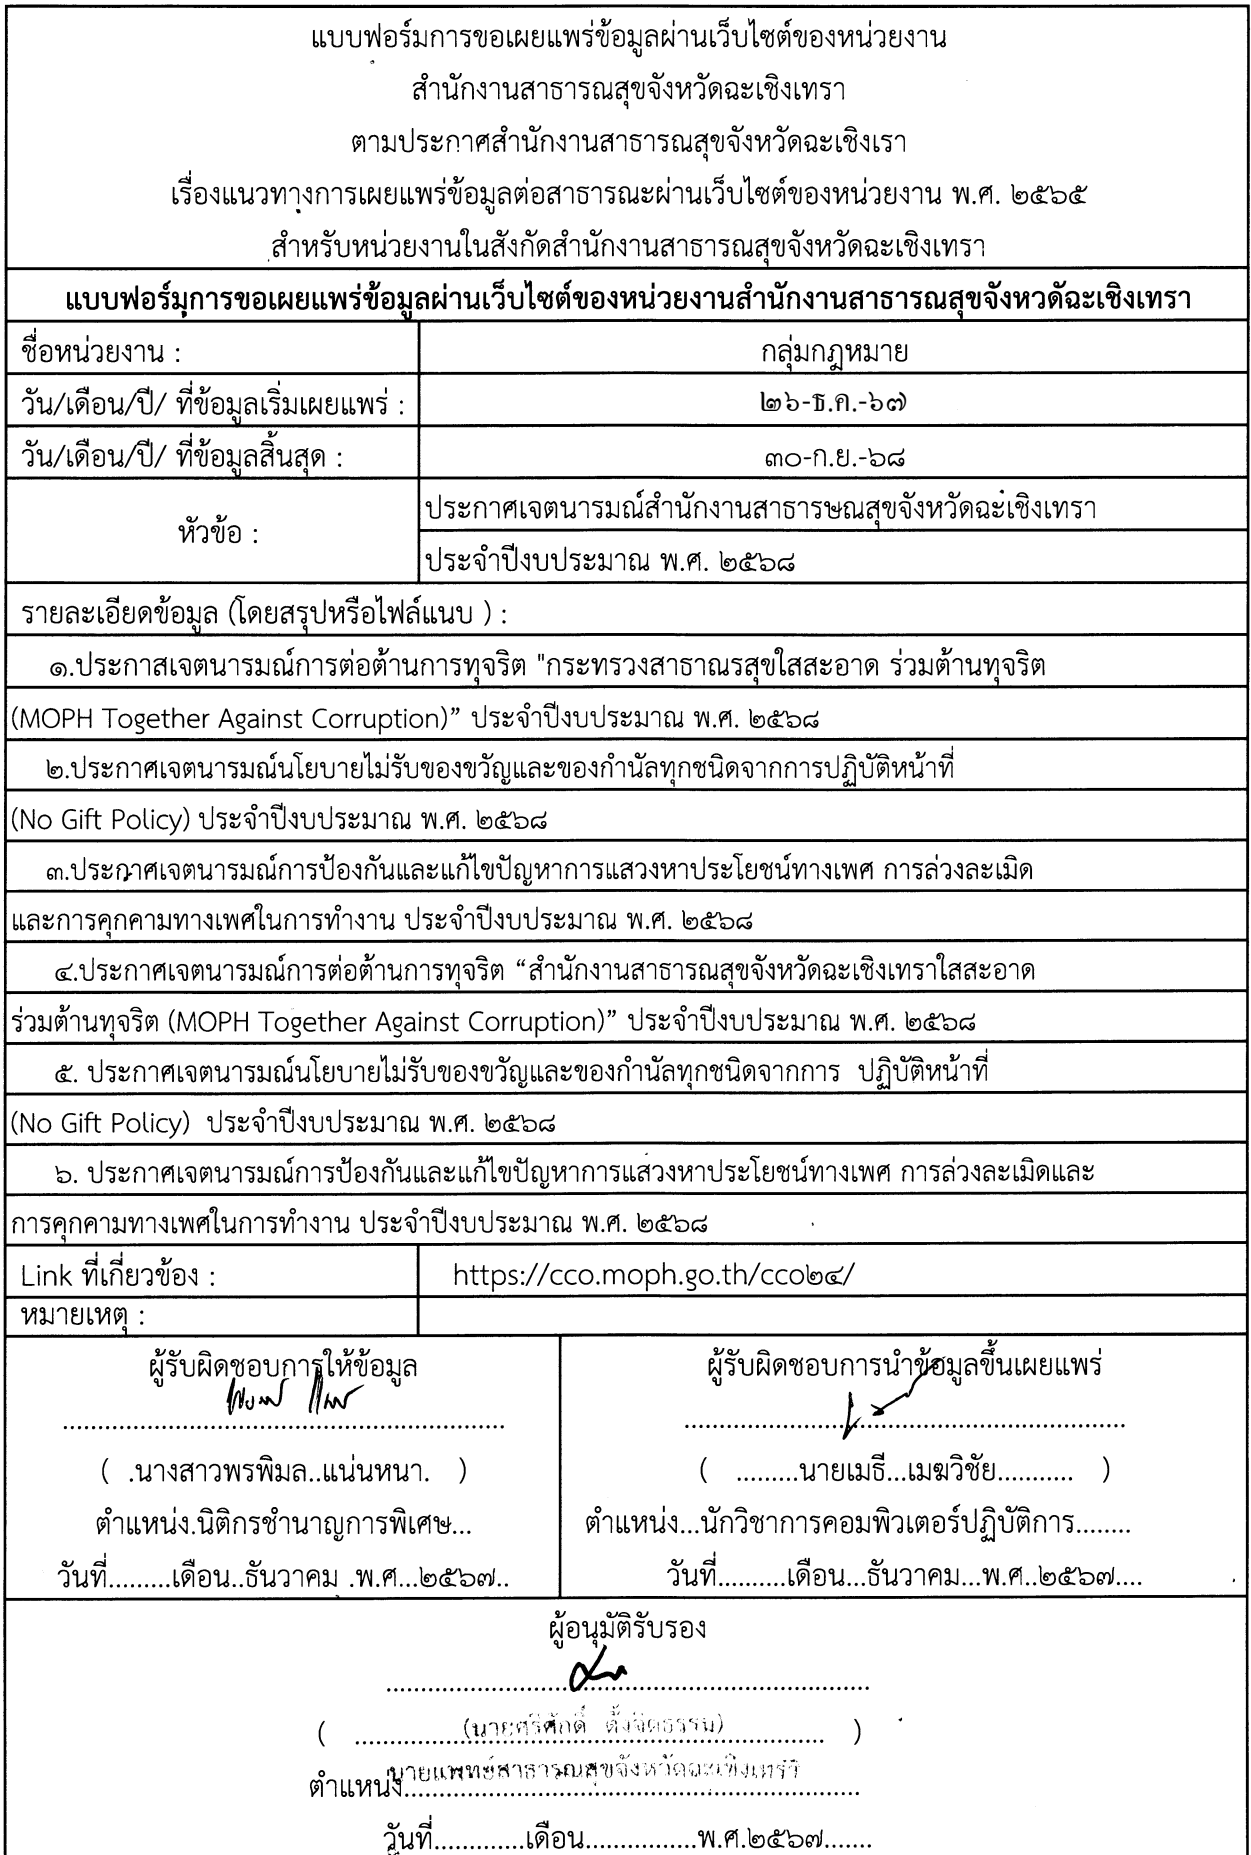 แบบฟอร์มการขอเผยแพร่ข้อมูลผ่านเว็บไซต์ของหน่วยงาน
สำนักงานสาธารณสุขจังหวัดฉะเชิงเทรา
ตามประกาศสำนักงานสาธารณสุขจังหวัดฉะเชิงเรา
เรื่องแนวทางการเผยแพร่ข้อมูลต่อสาธารณะผ่านเว็บไซต์ของหน่วยงาน พ.ศ. ๒๕๖๕
สำหรับหน่วยงานในสังกัดสำนักงานสาธารณสุขจังหวัดฉะเชิงเทรา
แบบฟอร์มการขอเผยแพร่ข้อมูลผ่านเว็บไซต์ของหน่วยงานสำนักงานสาธารณสุขจังหวดัฉะเชิงเทรา
ชื่อหน่วยงาน : กลุ่มกฎหมาย
วัน/เดือน/ปี/ ที่ข้อมูลเริ่มเผยแพร่ : ๒๖-ธ.ค.-๖๗
วัน/เดือน/ปี/ ที่ข้อมูลสิ้นสุด : ๓๐-ก.ย.-๖๘
หัวข้อ : ประกาศเจตนารมณ์สำนักงานสาธารษณสุขจังหวัดฉะเชิงเทรา
ประจำปีงบประมาณ พ.ศ. ๒๕๖๘
รายละเอียดข้อมูล (โดยสรุปหรือไฟล์แนบ ) :
๑.ประกาสเจตนารมณ์การต่อต้านการทุจริต "กระทรวงสาธาณรสุขใสสะอาด ร่วมต้านทุจริต
(MOPH Together Against Corruption)” ประจำปีงบประมาณ พ.ศ. ๒๕๖๘
๒.ประกาศเจตนารมณ์นโยบายไม่รับของขวัญและของกำนัลทุกชนิดจากการปฏิบัติหน้าที่
(No Gift Policy) ประจำปีงบประมาณ พ.ศ. ๒๕๖๘
๓.ประกาศเจตนารมณ์การป้องกันและแก้ไขปัญหาการแสวงหาประโยชน์ทางเพศ การล่วงละเมิด
และการคุกคามทางเพศในการทำงาน ประจำปีงบประมาณ พ.ศ. ๒๕๖๘
๔.ประกาศเจตนารมณ์การต่อต้านการทุจริต “สำนักงานสาธารณสุขจังหวัดฉะเชิงเทราใสสะอาด
ร่วมต้านทุจริต (MOPH Together Against Corruption)” ประจำปีงบประมาณ พ.ศ. ๒๕๖๘
๕. ประกาศเจตนารมณ์นโยบายไม่รับของขวัญและของกำนัลทุกชนิดจากการ ปฏิบัติหน้าที่
(No Gift Policy) ประจำปีงบประมาณ พ.ศ. ๒๕๖๘
๖. ประกาศเจตนารมณ์การป้องกันและแก้ไขปัญหาการแสวงหาประโยชน์ทางเพศ การล่วงละเมิดและ
การคุกคามทางเพศในการทำงาน ประจำปีงบประมาณ พ.ศ. ๒๕๖๘
Link ที่เกี่ยวข้อง : https://cco.moph.go.th/cco๒๔/
หมายเหตุ :
ผู้รับผิดชอบการให้ข้อมูล
..............................................................
( .นางสาวพรพิมล..แน่นหนา. )
ตำแหน่ง.นิติกรชำนาญการพิเศษ...
วันที่.........เดือน..ธันวาคม .พ.ศ...๒๕๖๗..
ผู้รับผิดชอบการนำข้อมูลขึ้นเผยแพร่
..............................................................
( .........นายเมธี...เมฆวิชัย........... )
ตำแหน่ง...นักวิชาการคอมพิวเตอร์ปฏิบัติการ........
วันที่..........เดือน...ธันวาคม...พ.ศ..๒๕๖๗....
ผู้อนุมัติรับรอง
....................................................................
( (นายศรีศักดิ์ ตั้งจิตธรรม) )
ตำแหน่ง นายแพทย์สาธารณสุขจังหวัดฉะเชิงเทรา
วันที่.............เดือน................พ.ศ.๒๕๖๗.......